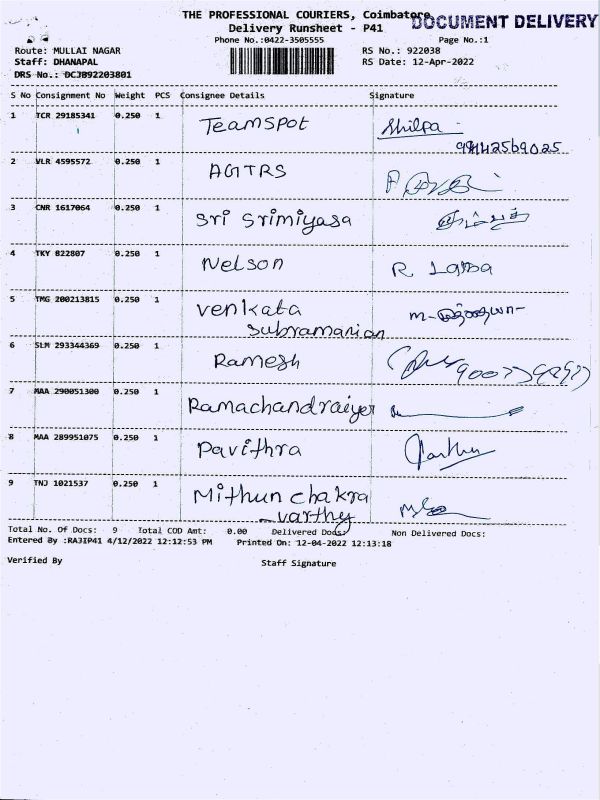 THE PROFESSIONAL COURIERS, Coimbatore
DOCUMENT DELIVERY
Delivery Runsheet - P41
Phone No.:0422-3505555
Page No.:1
Route: MULLAI NAGAR
RS No.: 922038
Staff: DHANAPAL
RS Date: 12-Apr-2022
DRS No.: DCJB92203801
S No Consignment No Weight PCS Consignee Details Signature
1 TCR 29185341 0.250 1 Teamspot Shilpa
2 VLR 4595572 0.250 1 AGTRS
3 CNR 1617064 0.250 1 Sri Srimiyasa
4 TKY 822807 0.250 1 Nelson R
5 TMG 200213815 0.250 1 Venkata
Subramanian
6 SLM 293344369 0.250 1 Ramesh
7 MAA 290051300 0.250 1 Ramachandraiyer
8 MAA 289951075 0.250 1 Pavithra
9 TNJ 1021537 0.250 1 Mithun chakra
varthy
Total No. Of Docs: 9 Total COD Amt: 0.00 Delivered Docs: Non Delivered Docs:
Entered By :RAJIP41 4/12/2022 12:12:53 PM Printed On: 12-04-2022 12:13:18
Verified By Staff Signature